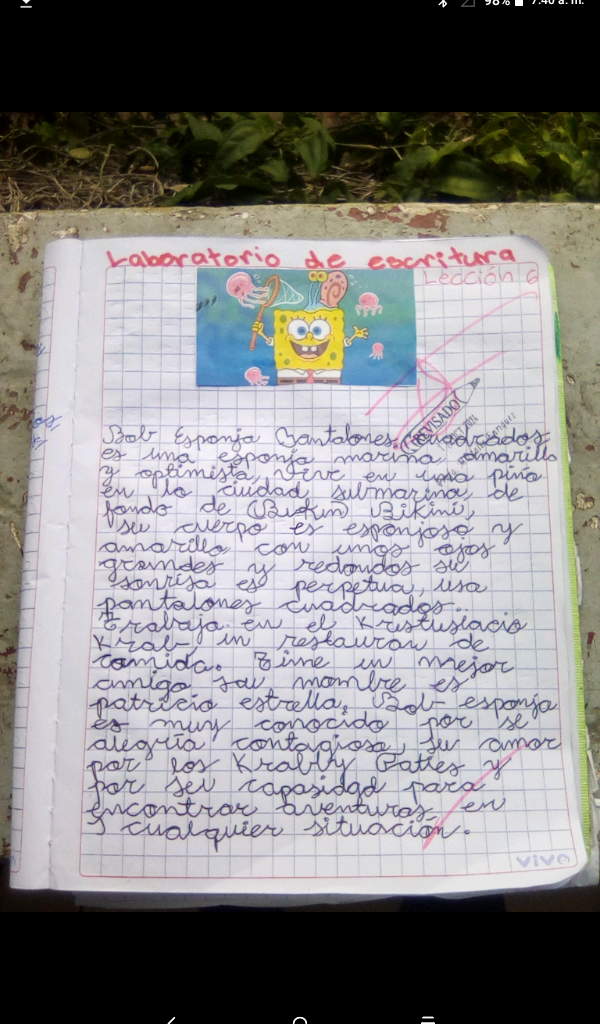 98% 7:40 a. m.
Laboratorio de escritura
Lección 6
REVISADO
Bob Esponja Pantalones cuadrados
es una esponja marina amarilla
y optimista, vive en una piña
en la ciudad submarina, de
fondo de (Bikin) Bikini,
su cuerpo es esponjoso y
amarillo con unos ojos
grandes y redondos su
sonrisa es perpetua, usa
pantalones cuadrados..
Trabaja en el
Krab un restauran de
comida. Tiene un mejor
amigo su nombre es
patricio estrella, Bob esponja
es muy conocido por se
alegría contagiosa, su amor
por los Krabby Paties y
por seu capasidad para
encontrar aventuras en
cualquier situación.
VIVO